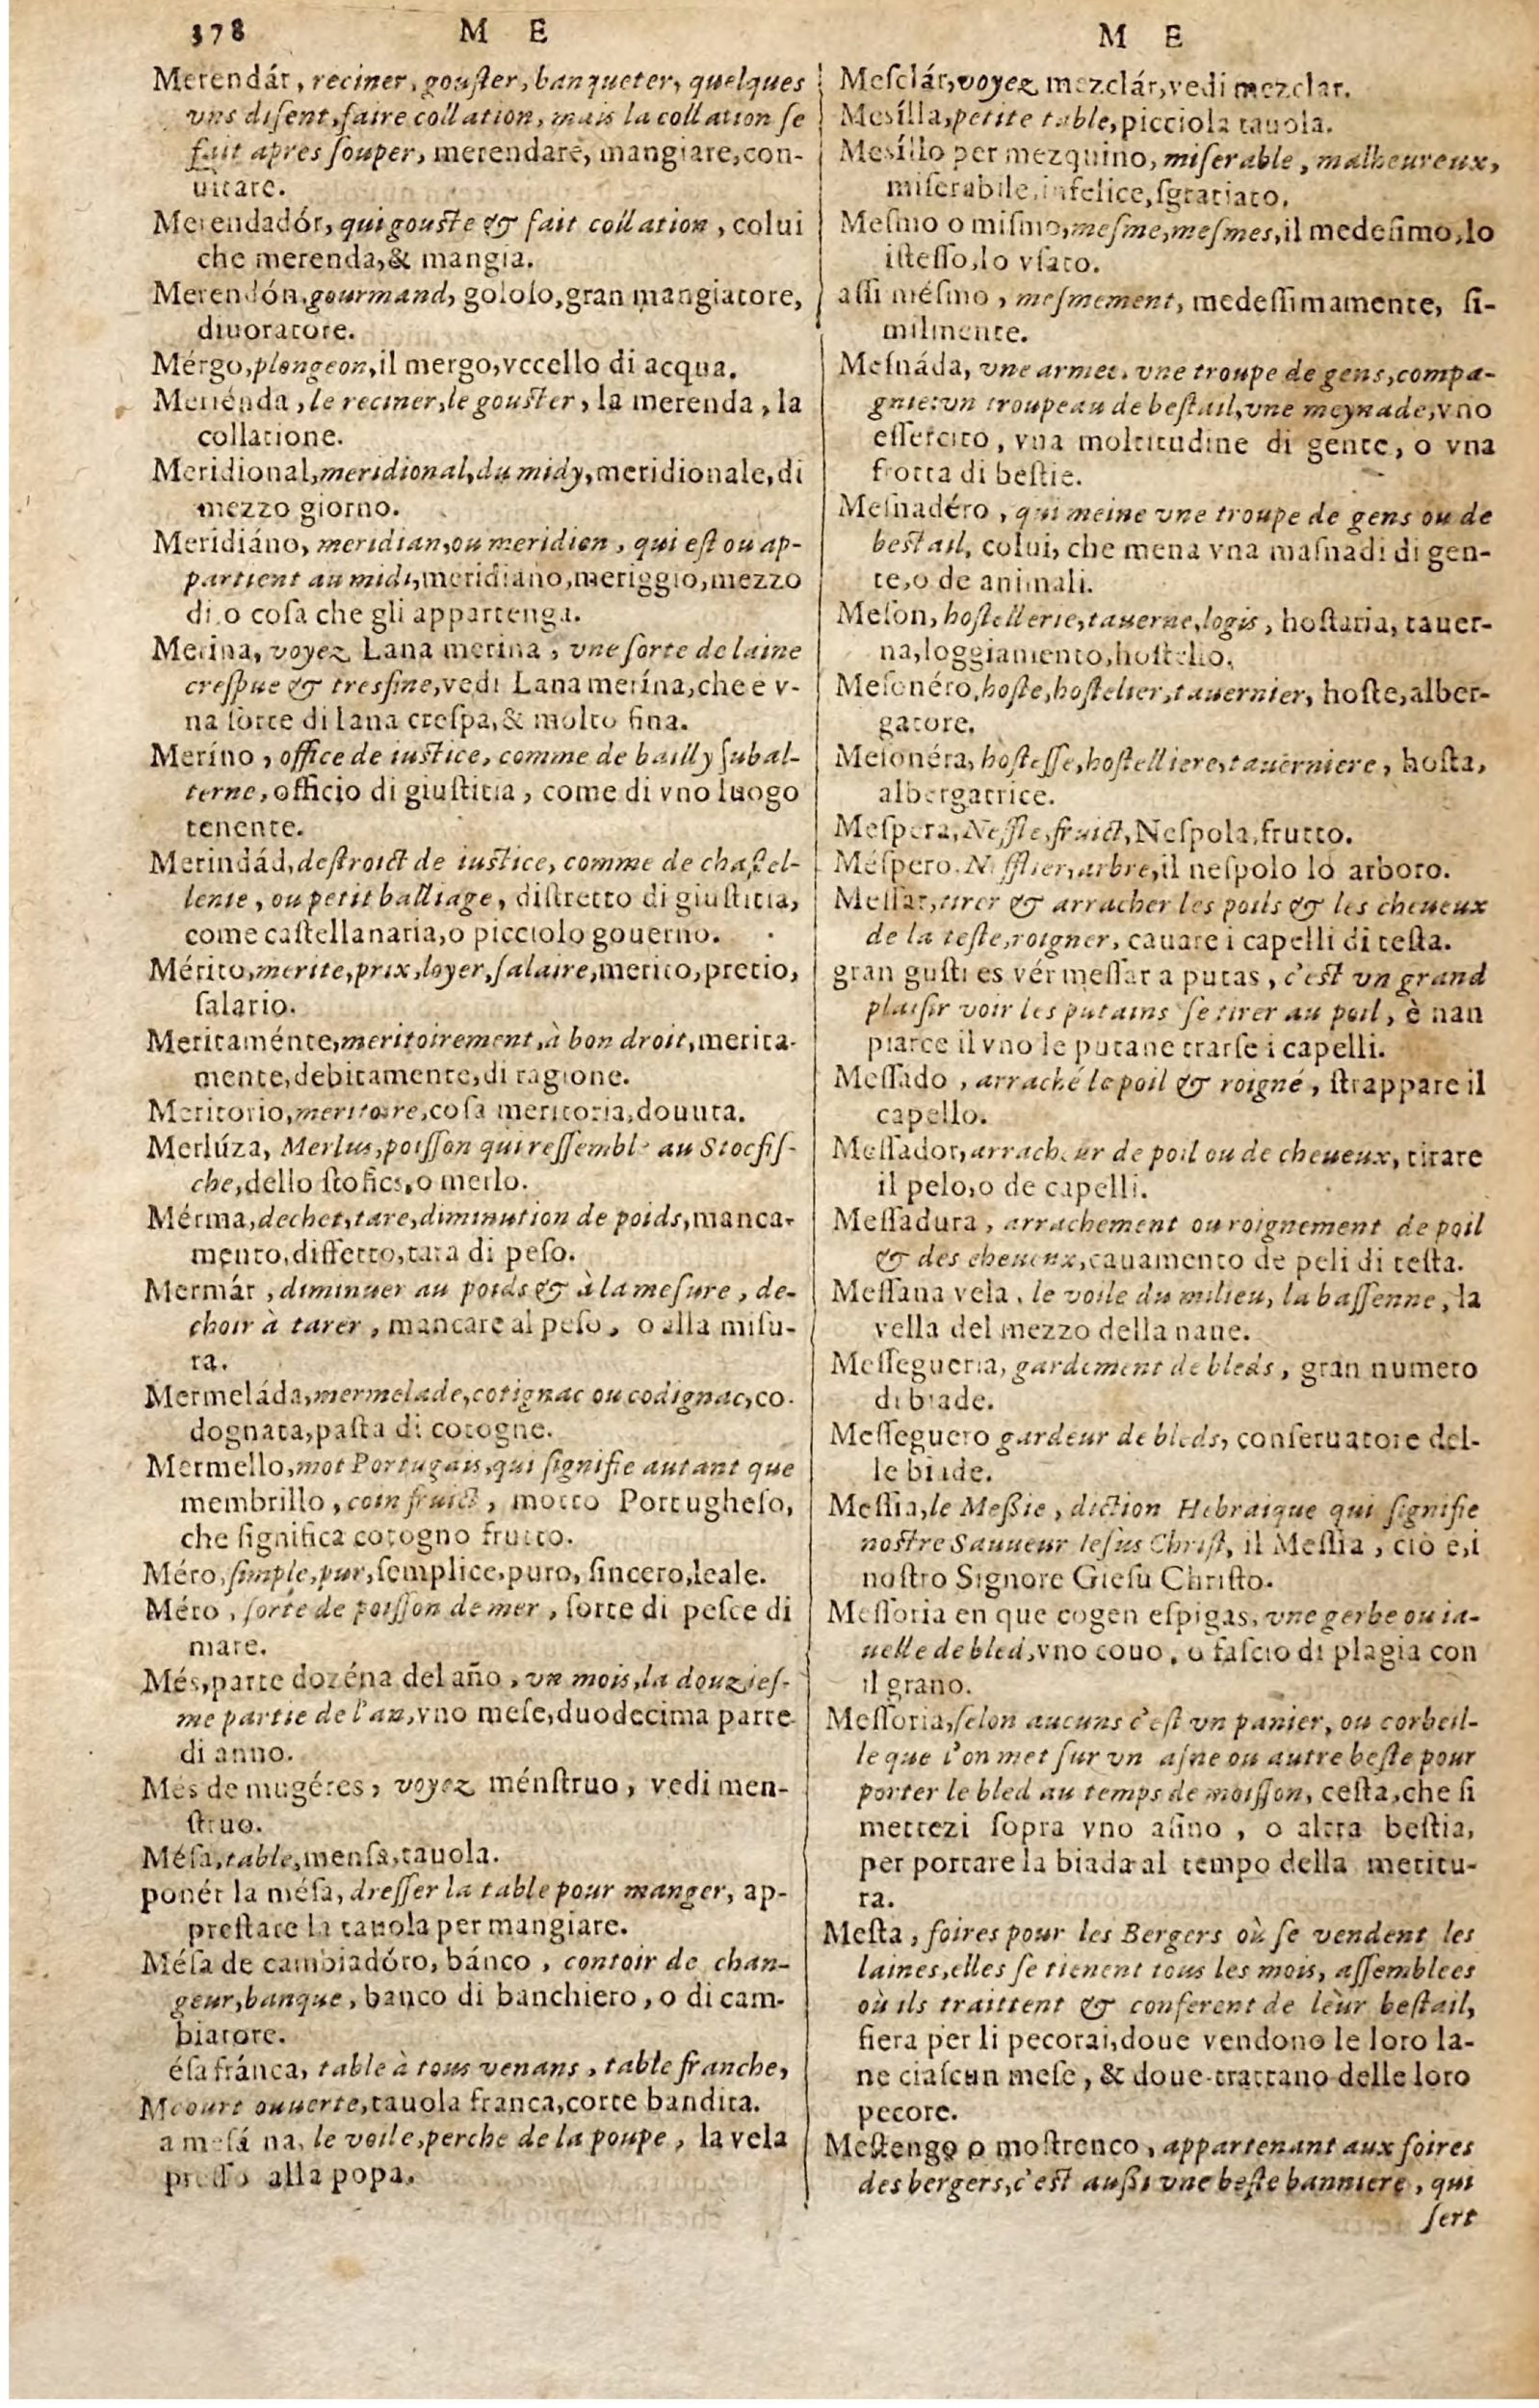 378 M E
Merendár, reciner, gouſter, banqueter, quelques
vns diſent, faire collation, mais la collation ſe
fait apres ſouper, merendare, mangiare, con-
uitare.
Merendadór, qui gouſte & fait collation, colui
che merenda, & mangia.
Merendón, gourmand, goloſo, gran mangiatore,
diuoratore.
Mérgo, plongeon, il mergo, vccello di acqua.
Meriénda, le reciner, le gouſter, la merenda, la
collatione.
Meridional, meridional, du midy, meridionale, di
mezzo giorno.
Meridiáno, meridian, ou meridien, qui eſt ou ap-
partient au midi, meridiano, meriggio, mezzo
di o coſa che gli appartenga.
Merina, voyez Lana merina, vne ſorte de laine
creſpue & tresfine, vedi Lana merína, che e v-
na ſorte di lana creſpa, & molto fina.
Meríno, office de iuſtice, comme de bailly ſubal-
terne, officio di giuſtitia, come di vno luogo
tenente.
Merindád, deſtroict de iuſtice, comme de chaſtel-
lenie, ou petit balliage, diſtretto di giuſtitia,
come caſtellanaria, o picciolo gouerno.
Mérito, merite, prix, loyer, ſalaire, merito, precio,
ſalario.
Meritaménte, meritoirement, à bon droit, merita-
mente, debitamente, di ragione.
Meritorio, meritoire, coſa meritoria, douuta.
Merlúza, Merlus, poiſſon qui reſſemble au Stocfiſ-
che, dello ſtofics, o merlo.
Mérma, dechet, tare, diminution de poids, manca-
mento, diffetto, tara di peſo.
Mermár, diminuer au poids & à la meſure, de-
choir à tarer, mancare al peſo, o alla miſu-
ra.
Mermeláda, mermelade, cotignac ou codignac, co-
dognata, paſta di cotogne.
Mermello, mot Portugais, qui ſignifie autant que
membrillo, coin fruict, motto Portugheſo,
che ſignifica cotogno frutto.
Méro, ſimple, pur, ſemplice, puro, ſincero, leale.
Méro, ſorte de poiſſon de mer, ſorte di peſce di
mare.
Més, parte dozéna del año, vn mois, la douzieſ-
me partie de l'an, vno meſe, duodecima parte
di anno.
Més de mugéres, voyez ménſtruo, vedi men-
ſtruo.
Méſa, table, menſa, tauola.
ponér la méſa, dreſſer la table pour manger, ap-
preſtare la tauola per mangiare.
Méſa de cambiadóro, bánco, contoir de chan-
geur, banque, banco di banchiero, o di cam-
biatore.
éſa fránca, table à tous venans, table franche,
Mcourt ouuerte, tauola franca, corte bandita.
a meſá na, le voile, perche de la poupe, la vela
preſſo alla popa.
M E
Meſclár, voyez mezclár, vedi mezclar.
Mesílla, petite table, picciola tauola.
Mesíllo per mezquino, miſerable, malheureux,
miſerabile, infelice, ſgratiato.
Meſmo o miſmo, meſme, meſmes, il medeſimo, lo
iſteſſo, lo vſato.
aſſi méſmo, meſmement, medeſſimamente, ſi-
milmente.
Meſnáda, vne armee, vne troupe de gens, compa-
gnie: vn troupeau de beſtail, vne meynade, vno
eſſercito, vna moltitudine di gente, o vna
frotta di beſtie.
Meſnadéro, qui meine vne troupe de gens ou de
beſtail, colui, che mena vna maſnadi di gen-
te, o de animali.
Meſon, hoſtellerie, tauerne, logis, hoſtaria, tauer-
na, loggiamento, hoſtello.
Meſonéro, hoſte, hoſtelier, tauernier, hoſte, alber-
gatore.
Meſonéra, hoſteſſe, hoſtelliere, tauerniere, hoſta,
albergatrice.
Meſpera, Neffle, fruict, Neſpola, frutto.
Méſpero, Nefflier, arbre, il neſpolo lo arboro.
Meſſar, tirer & arracher les poils & les cheueux
de la teſte, roigner, cauare i capelli di teſta.
gran guſti es vér meſſar a putas, c'eſt vn grand
plaiſir voir les putains ſe tirer au poil, è nan
piarce il vno le putane trarſe i capelli.
Meſſado, arraché le poil & roigné, ſtrappare il
capello.
Meſſador, arracheur de poil ou de cheueux, tirare
il pelo, o de capelli.
Meſſadura, arrachement ou roignement de poil
& des cheueux, cauamento de peli di teſta.
Meſſana vela, le voile du milieu, la baſſenne, la
vella del mezzo della naue.
Meſſegueria, gardement de bleds, gran numero
di biade.
Meſſeguero gardeur de bleds, conſeruatore del-
le biade.
Meſſia, le Meßie, diction Hebraique qui ſignifie
noſtre Sauueur Ieſus Chriſt, il Meſſia, ciò e, i
noſtro Signore Gieſu Chriſto.
Meſſoria en que cogen eſpigas, vne gerbe ou ia-
uelle de bled, vno couo, o faſcio di plagia con
il grano.
Meſſoria, ſelon aucuns c'eſt vn panier, ou corbeil-
le que l'on met ſur vn aſne ou autre beſte pour
porter le bled au temps de moiſſon, ceſta, che ſi
mettezi ſopra vno aſino, o altra beſtia,
per portare la biada al tempo della meritu-
ra.
Meſta, foires pour les Bergers où ſe vendent les
laines, elles ſe tienent tous les mois, aſſemblees
où ils traittent & conferent de leur beſtail,
fiera per li pecorai, doue vendono le loro la-
ne ciaſcun meſe, & doue trattano delle loro
pecore.
Meſtengo o moſtrenco, appartenant aux foires
des bergers, c'eſt außi vne beſte banniere, qui
ſert